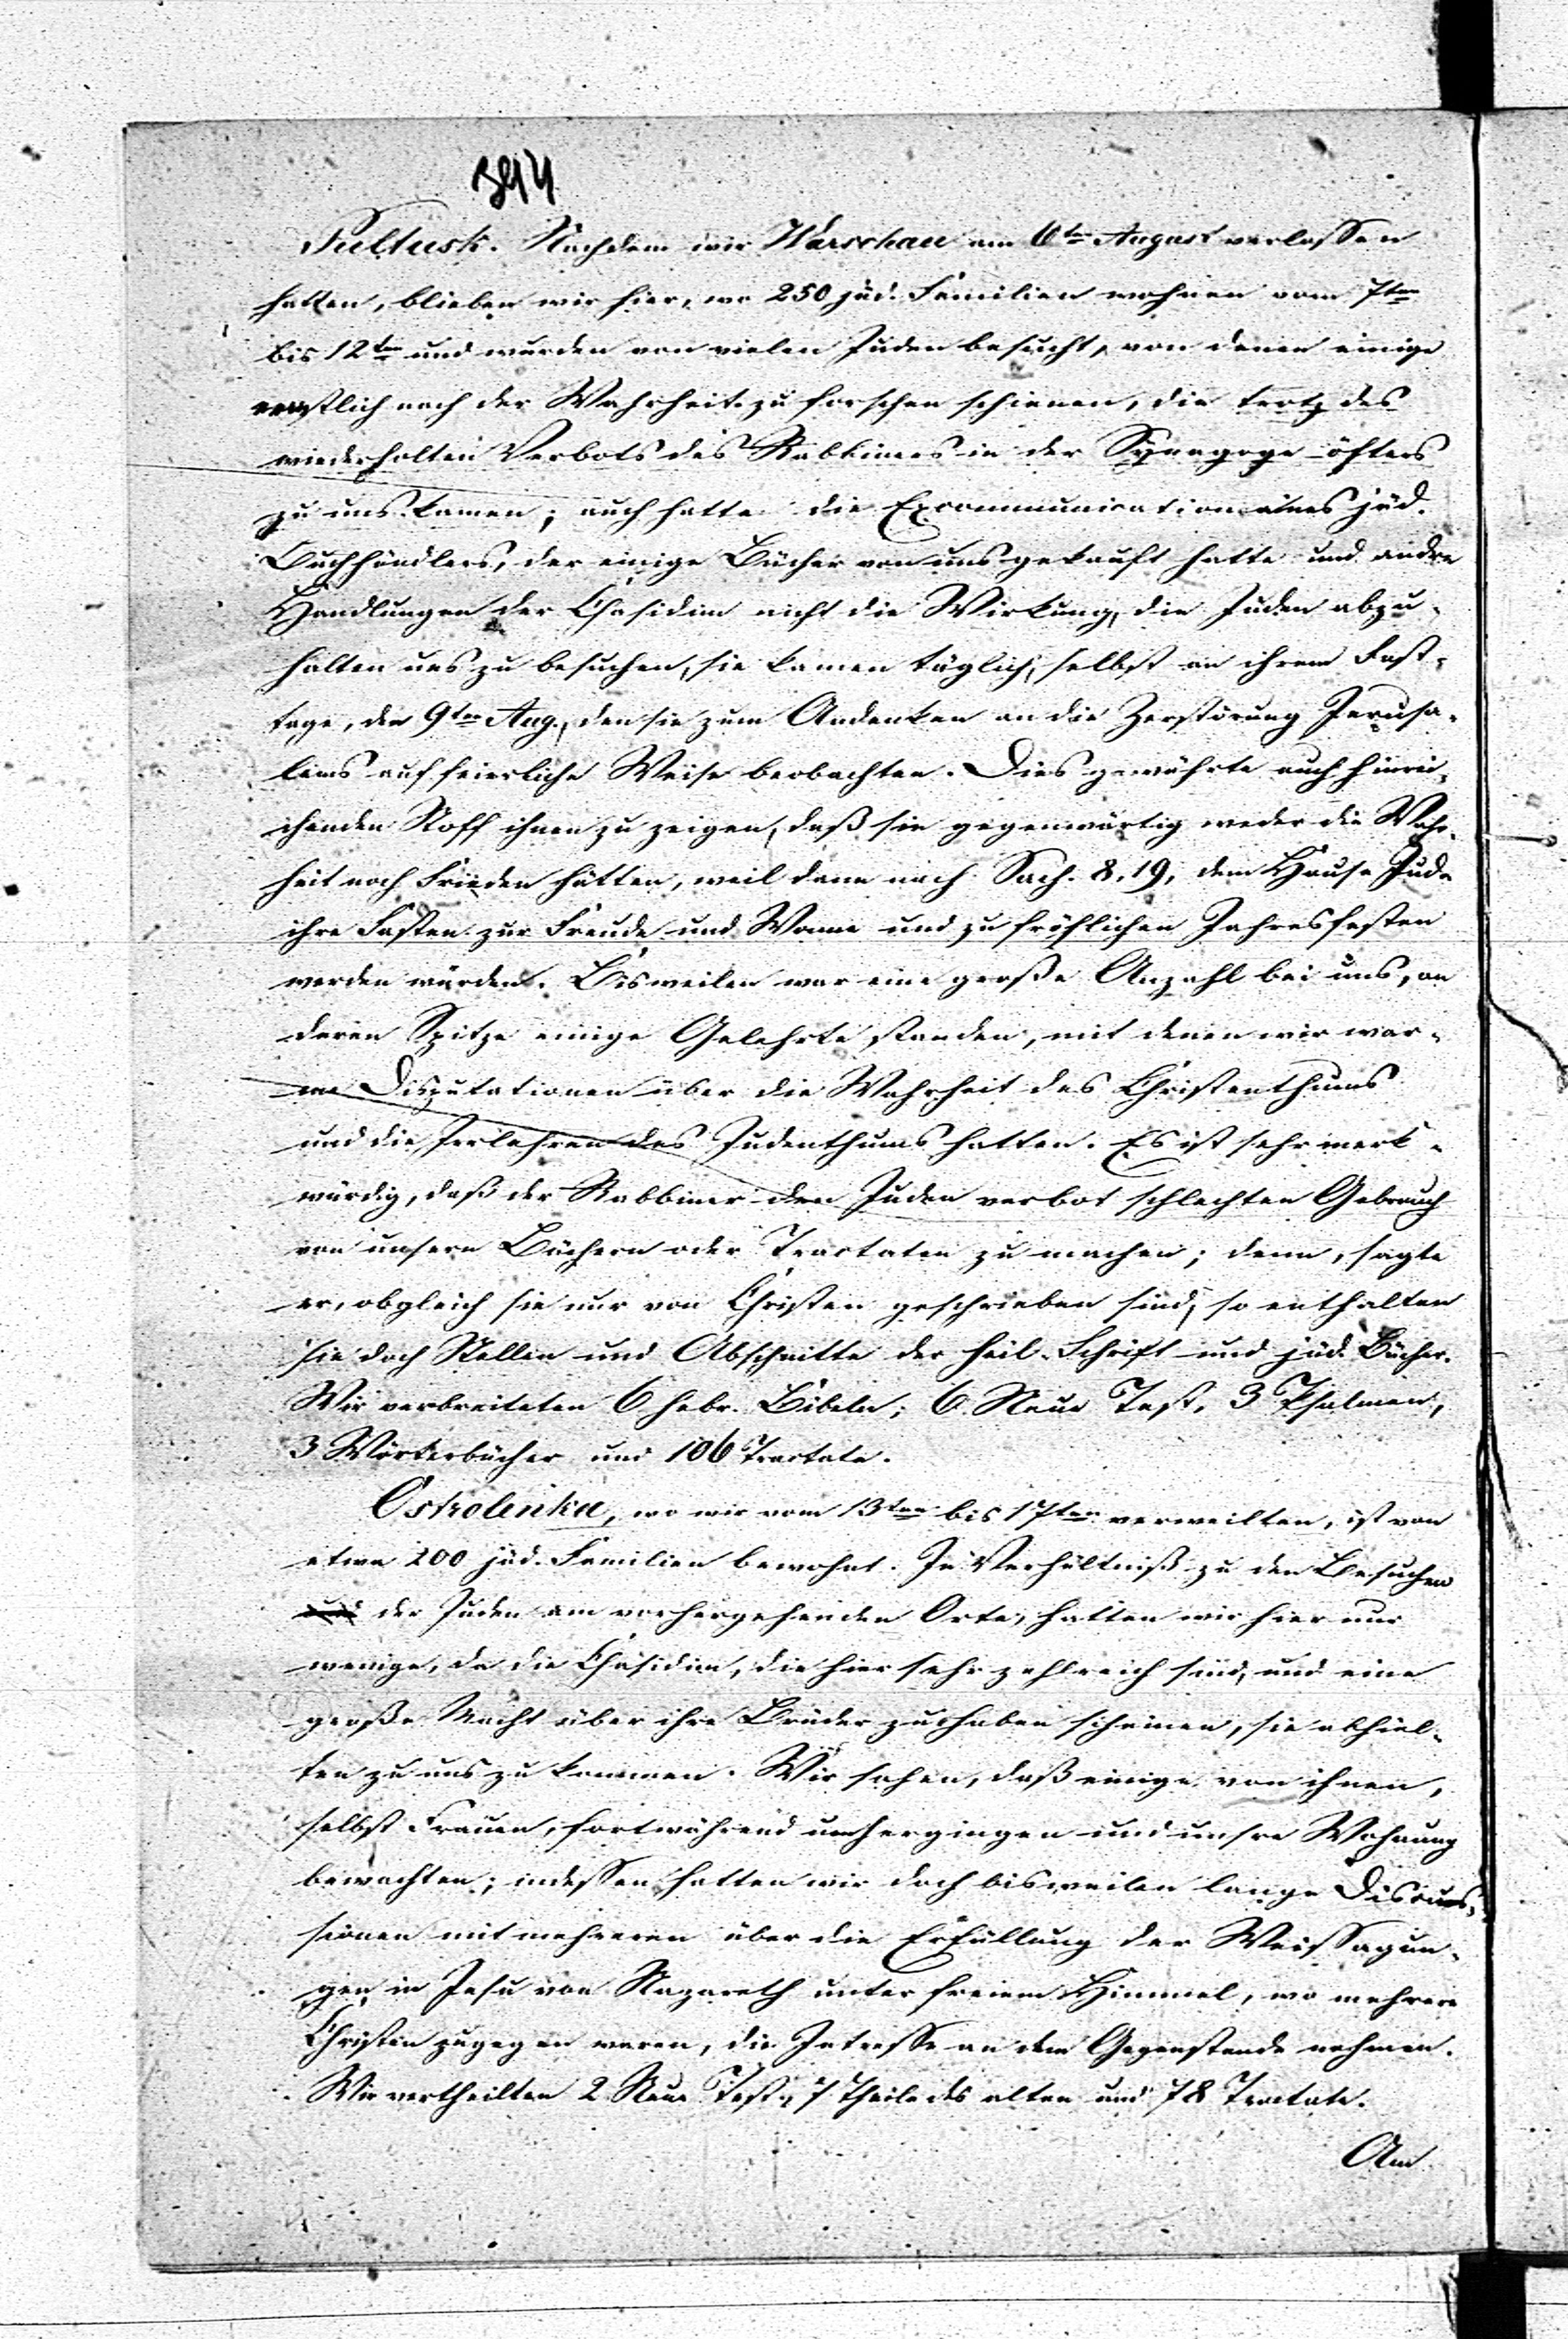 394
Pultusk. Nachdem wir Warschau am 6ten August verlassen
hatten, blieben wir hier, wo 250 jüd. Familien wohnen vom 7ten
bis 12ten und wurden von vielen Juden besucht, von denen einige
ernstlich nach der Wahrheit zu forschen schienen, die trotz des
wiederholten Verbots des Rabbiners in der Synagoge öfters
zu uns kamen; auch hatte die Excommunication eines jüd.
Buchhändlers, der einige Bücher von uns gekauft hatte und andre
Handlungen der Chasidim nicht die Wirkung, die Juden abzu-
halten uns zu besuchen, sie kamen täglich, selbst an ihrem Fast-
tage, den 9ten Aug., den sie zum Andenken an die Zerstörung Jerusa-
lems auf feierliche Weise beobachten. Dies gewährte auch hinrei-
chenden Stoff ihnen zu zeigen, daß sie gegenwärtig weder die Wahr-
heit noch Frieden hätten, weil dann nach Sach. 8, 19, dem Hause Juda
ihre Fasten zur Freude und Wonne und zu fröhlichen Jahresfesten
werden würden. Bisweilen war eine große Anzahl bei uns, an
deren Spitze einige Gelehrte standen, mit denen wir war-
me Disputationen über die Wahrheit des Christenthums
und die Irrlehren des Judenthums hatten. Es ist sehr merk-
würdig, daß der Rabbiner den Juden verbot schlechten Gebrauch
von unsern Büchern oder Tractaten zu machen; denn, sagte
er, obgleich sie nur von Christen geschrieben sind, so enthalten
sie doch Stellen und Abschnitte der heil. Schrift und jüd. Bücher.
Wir verbreiteten 6 hebr. Bibeln; 6 Neue Test, 3 Psalmen,
3 Wörterbücher und 106 Tractate.
Ostrolenka, wo wir vom 13ten bis 17ten verweilten, ist von
etwa 200 jüd. Familien bewohnt. In Verhältniß zu den Besuchen
der Juden am vorhergehenden Orte, hatten wir hier nur
wenige, da die Chasidim, die hier sehr zahlreich sind, und eine
große Macht über ihre Brüder zu haben scheinen, sie abhiel-
ten zu uns zu kommen. Wir sahen, daß einige von ihnen,
selbst Frauen, fortwährend umhergingen und unsre Wohnung
bewachten; indessen hatten wir doch bisweilen lange Discus-
sionen mit mehreren über die Erfüllung der Weissagun-
gen in Jesu von Nazareth unter freiem Himmel, wo mehrere
Christen zugegen waren, die Intresse an dem Gegenstande nahmen.
Wir vertheilten 2 Neue Test, 7 Theile des alten und 78 Tractate.
Am